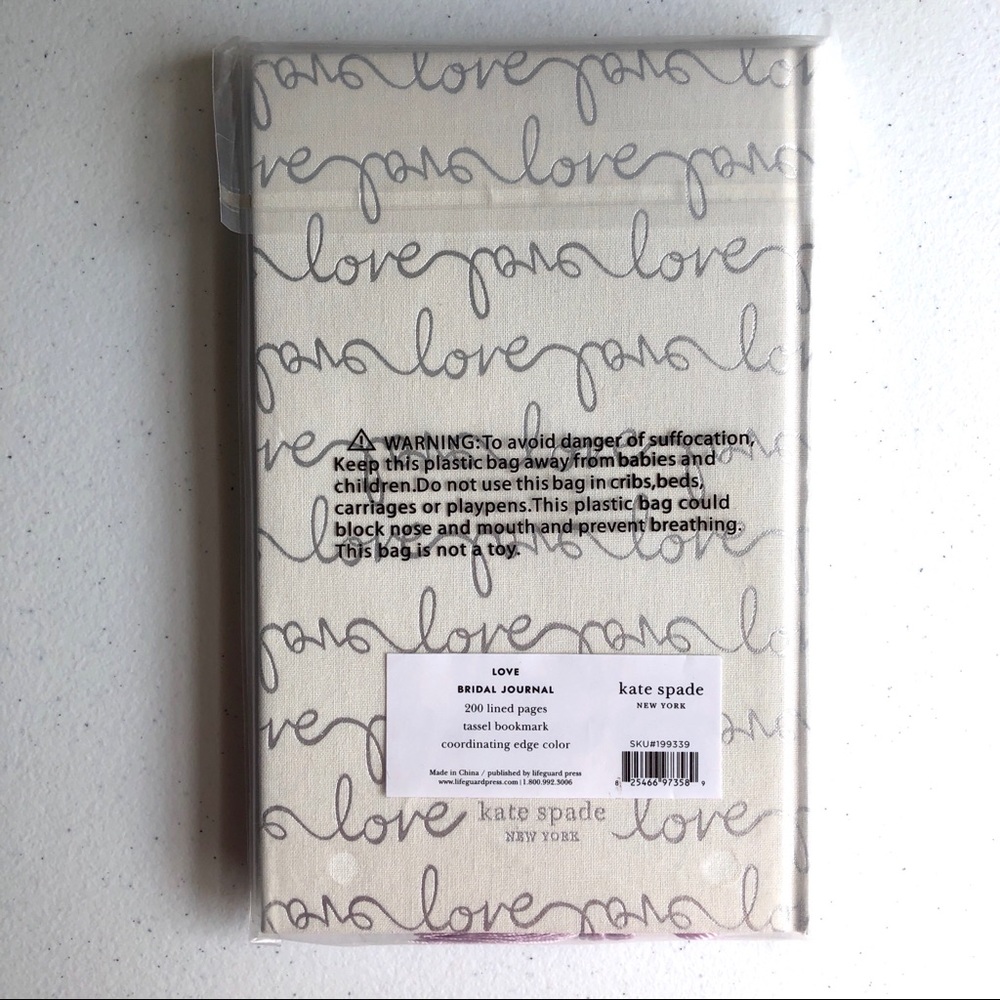 love love love lo
ve love love love
love love love
love love love lo
ve love love love
⚠ WARNING:To avoid danger of suffocation,
Keep this plastic bag away from babies and
children.Do not use this bag in cribs,beds,
carriages or playpens.This plastic bag could
block nose and mouth and prevent breathing.
This bag is not a toy.
love love love
love love love lo
LOVE
BRIDAL JOURNAL
200 lined pages
tassel bookmark
coordinating edge color
Made in China / published by lifeguard press
www.lifeguardpress.com | 1.800.992.3006
kate spade
NEW YORK
SKU#199339
8 25466 97358 9
ve
love kate spade love
NEW YORK
love love love lo